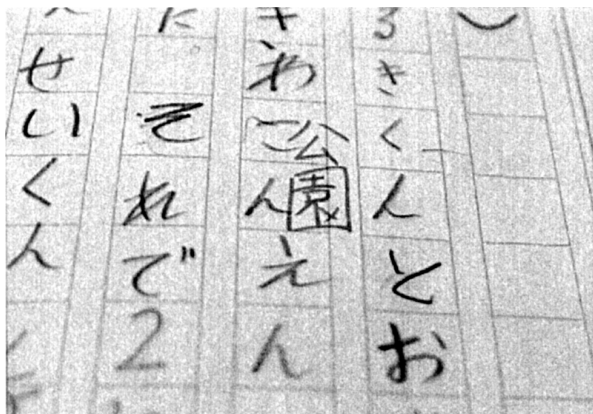 ）
るきくんとお
わこんえん
公園
た。それで2
せいくん